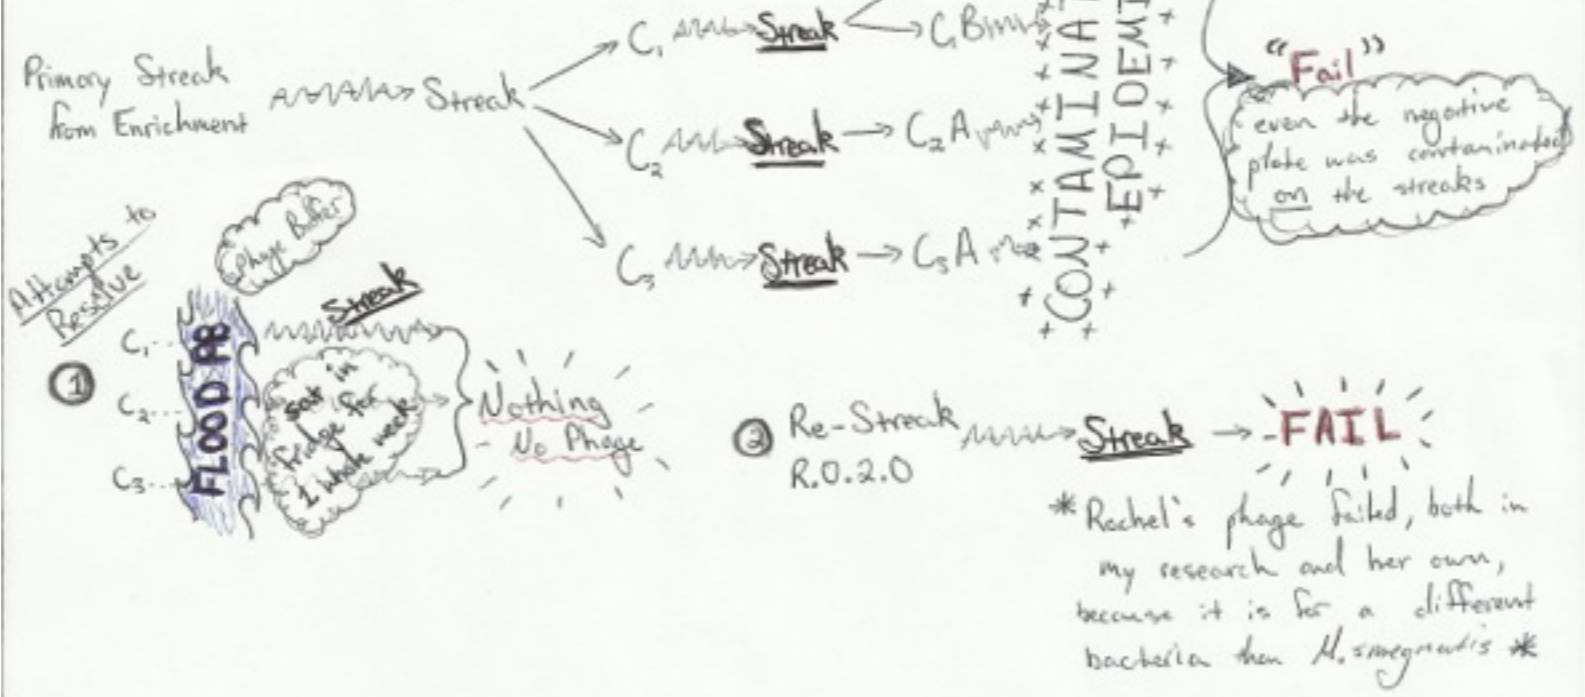 Primary Streak
from Enrichment
Streak
C₁
Streak
C₁B
C₂
Streak
C₂A
C₃
Streak
C₃A
CONTAMINA
EPIDEMI
"Fail"
even the negative
plate was contaminated
on the streaks
Attempts to
Resolve
①
Phage Buffer
C₁
C₂...
C₃...
FLOOD PB
Streak
sat in
fridge for
1 whole week
Nothing
No Phage
② Re-Streak
R.O.2.0
Streak
FAIL
* Rachel's phage failed, both in
my research and her own,
because it is for a different
bacteria than M. smegmatis *